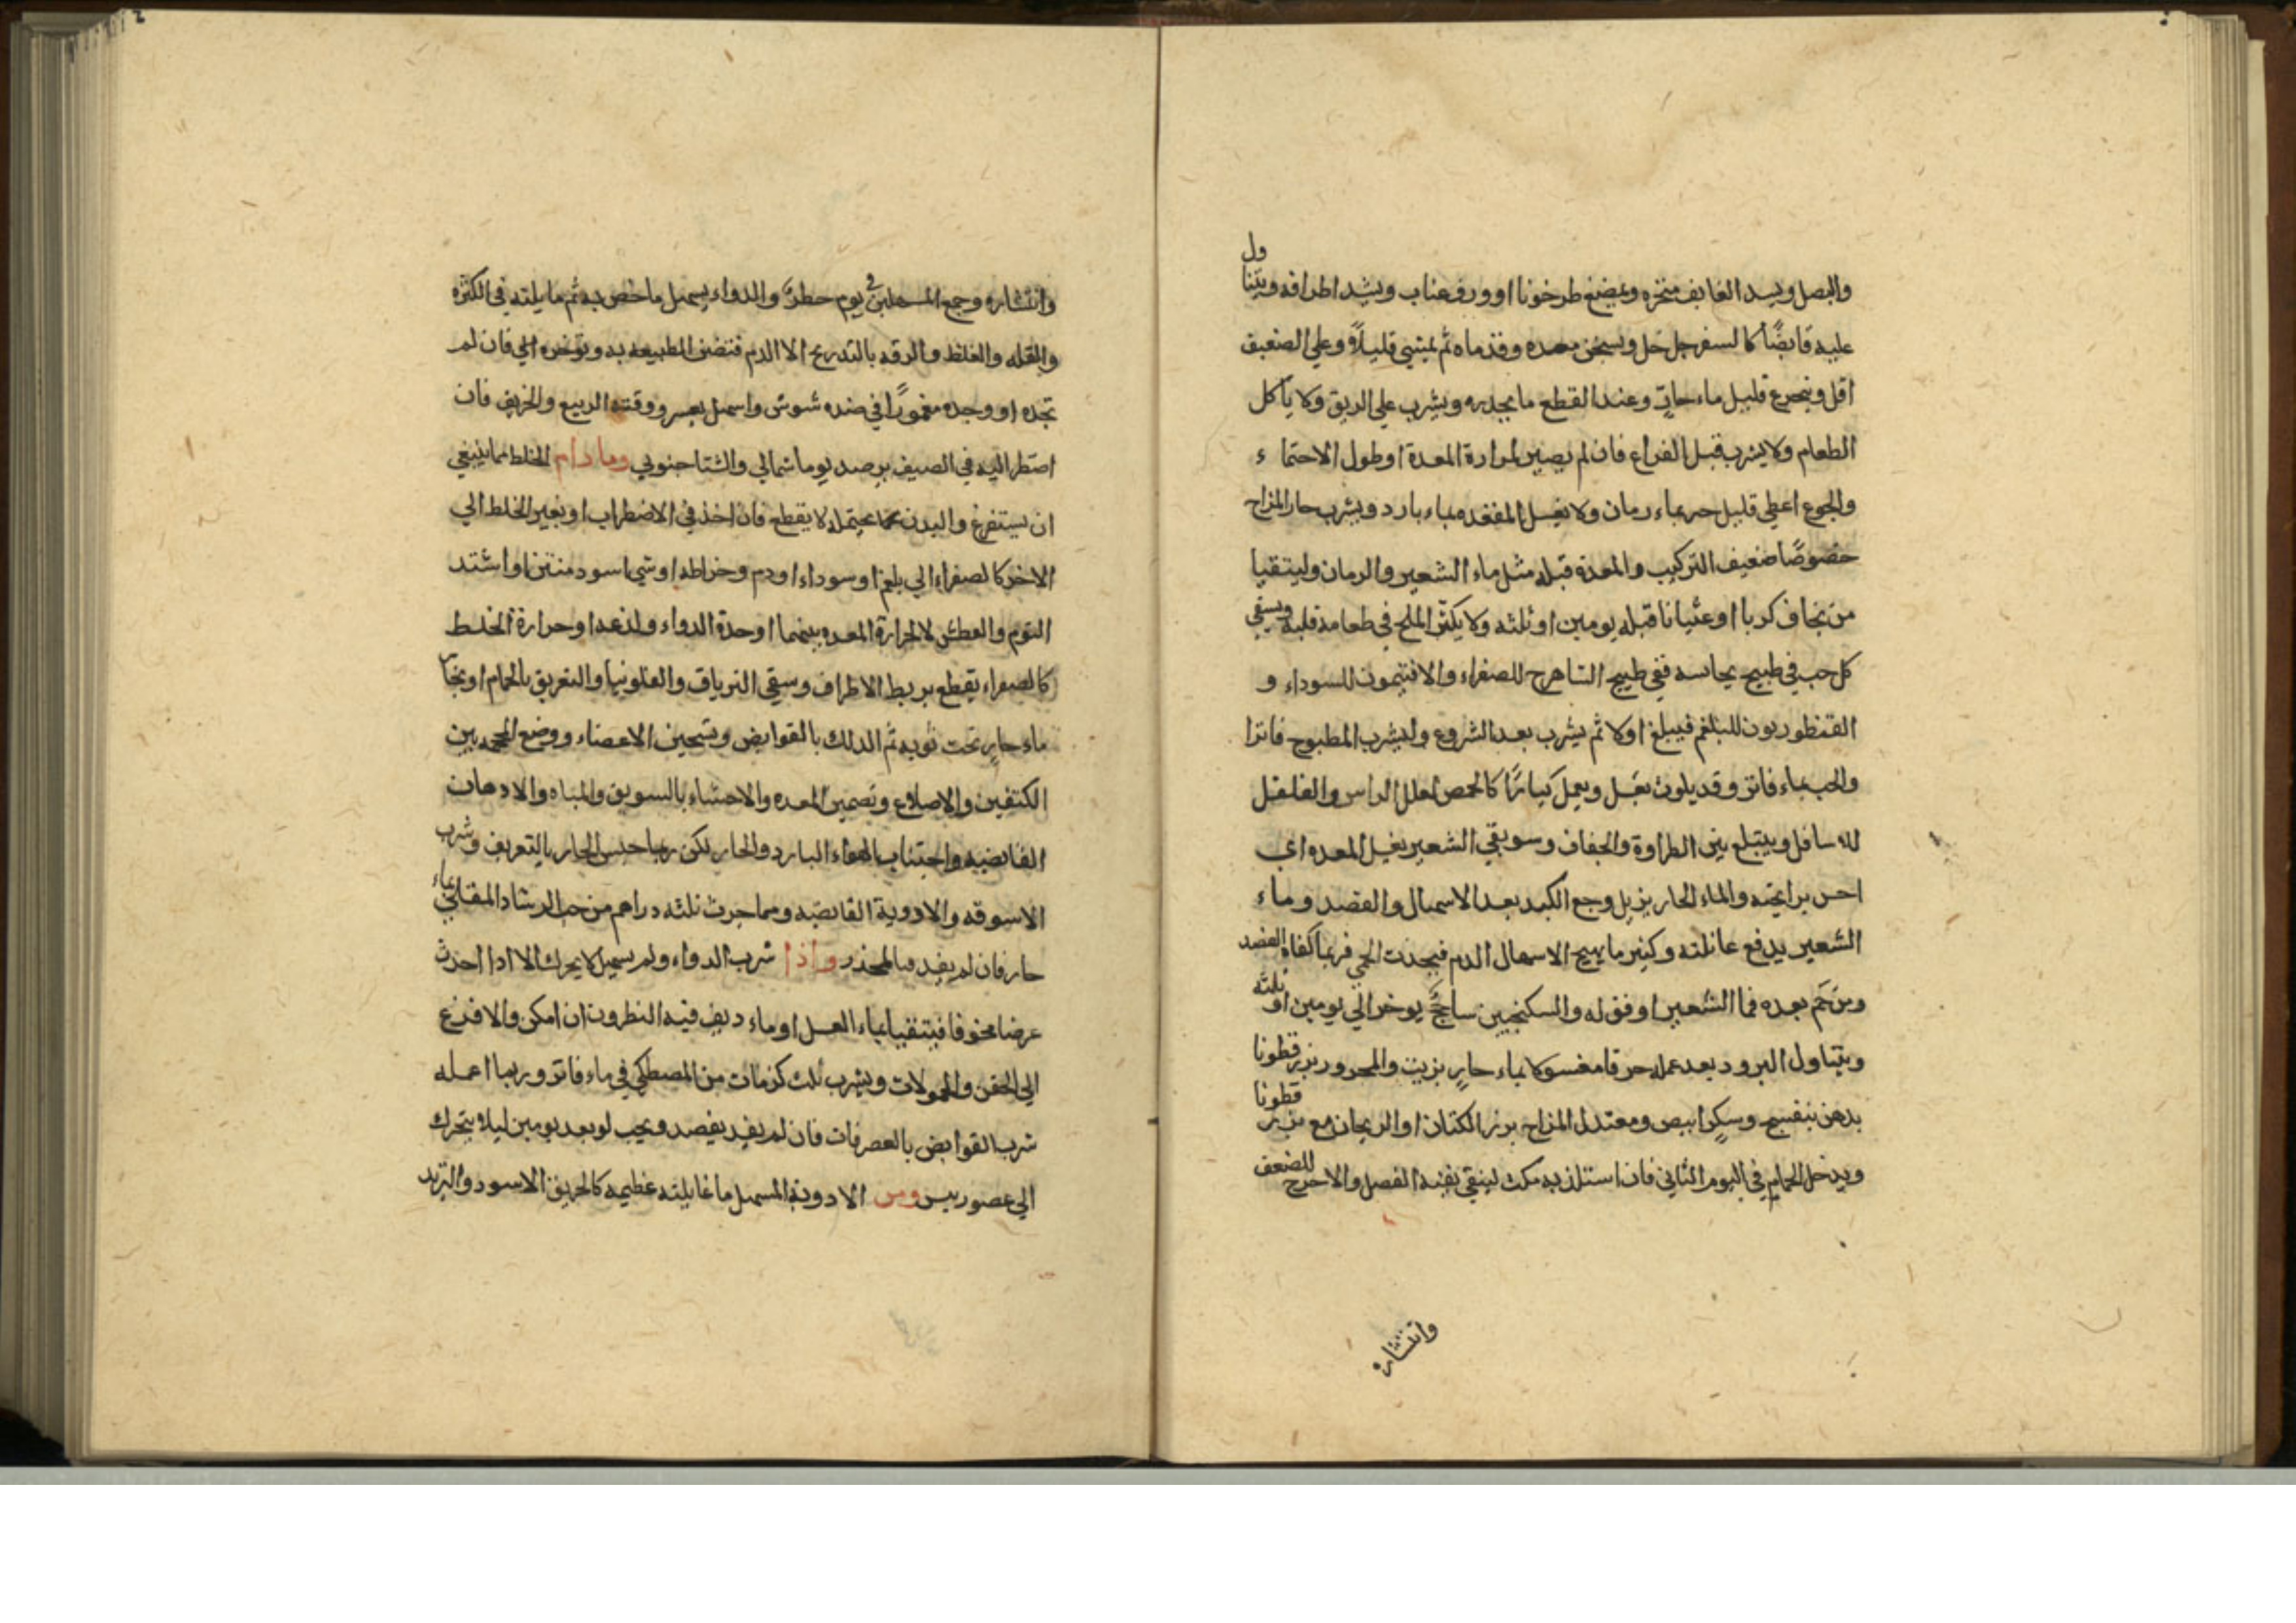 والبصل ويسد العايف منخره ويمضغ طرخونا او ورق عناب ويشد اطرافه ويتنا
ول
عليه قابضًا كالسفرجل خل ويسخن معده وقدماه ثم يمشي قليلاً وعلي الضعيف
اقل ويتجرع قليل ماء حارّ وعند القطع ما يجدره ويشرب علي الريق ولا ياكل
الطعام ولا يشرب قبل الفراغ فان لم يصبر لمرارة المعدة او طول الاحتماء
والجوع اعطي قليل خبز بماء رمان ولا يغسل المقعده بماء بارد ويشرب حار المزاج
خصوصًا ضعيف التركيب والمعدة قبله مثل ماء الشعير والرمان وليتقيا
من يخاف كربا او غثيانا قبله يومين او ثلثه ولا يكثر الملح في طعامه قلبه ويسقي
كل حب في طبيخ يجانسه ففي طبيخ الشاهرج للصفراء والافتيمون للسوداء و
القنطوريون للبلغم فيبلغ اولا ثم يشرب بعد الشروع وليشرب المطبوخ فاترا
والحب بماء فاتر وقد يلوث بعسل ويعمل كبارًا كالحمص لعلل الراس والفلفل
للاسافل ويبتلع بين الطراوة والجفاف وسويقي الشعير يغسل المعده اي
احس برايحته والماء الحار يزيل وجع الكبد بعد الاسهال والفصد وماء
الشعير يدفع غائلته وكثير ما يهيج الاسهال الدم فيحدث الحمي فربما كفاه الفصد
ومن حُم بعده فما الشعير اوفق له والسكنجبين ساحجٌ يوخر الي يومين او ثلثه
ويتناول البرود بعد عمله حرفا مغسولا بماء حار بزيت والمحرور بزر قطونا
بدهن بنفسج وسكر ابيض ومعتدل المزاج بزر الكتان او الريحان مع بزر قطونا
ويدخل الحمام في اليوم الثاني فان استلذ به مكث لينقي بقيه الفصل والا خرج للضعف
وانتشاره
وانتشاره وجمع المسهلين في يوم خطرٌ والدواء يسهل ما خص به ثم ما يلته في الكثره
والقله والغلظ والرقه بالتدريج الا الدم فتضن الطبيعه به وتوخره الي فان لم
تجده او وجده مغمورًا في ضده شوش واسهل بعسر ووقته الربيع والخريف فان
اضطر اليه في الصيف يرصد يوما شمالي والشتا جنوبي وما دام الخلط مما ينبغي
ان يستفرغ والبدن مما يحتمله لا يقطع فان اخذ في الاضطراب او بغير الخلط الي
الاخر كالصفراء الي بلغم او سوداء او دم وخراطه او شي اسود منتن او اشتد
النوم والعطش لا لحرارة المعده بينهما او حدة الدواء ولذعه او حرارة الخلط
كالصفراء يقطع بربط الاطراف وسقي الترياق والفلونيا والتعريق بالحمام او بخار
ماء حار تحت ثوبه ثم الدلك بالقوابض وتسخين الاعضاء ووضع المحجمه بين
الكتفين والاضلاع وتضميد المعده والاحشاء بالسويق والمياه والادهان
القابضيه واجتناب الهواء البارد والحار لكن ربما حبس الحار بالتعريف وشرب
الاسوقه والادوية القابضه ومما جربت ثلثه دراهم من حب الرشاد المقلي بماء
حار فان لم يفد فبالمخدر واذا شرب الدواء ولم يسهل لا يحرك الا اذا احدث
عرضا مخوفا فيتقيا بماء العسل او ماء ديف فيه النطرون ان امكن والا فزع
الي الحقن والحمولات ويشرب ثلث كرمات من المصطكي في ماء فاتر وربما اعمله
شرب القوابض بالعصر فات فان لم يفد يفصد ويجب لو بعد يومين ليلا يتحرك
الي عضو رييس ومن الادوية المسهل ما غايلته عظيمه كالخربق الاسود والتربد